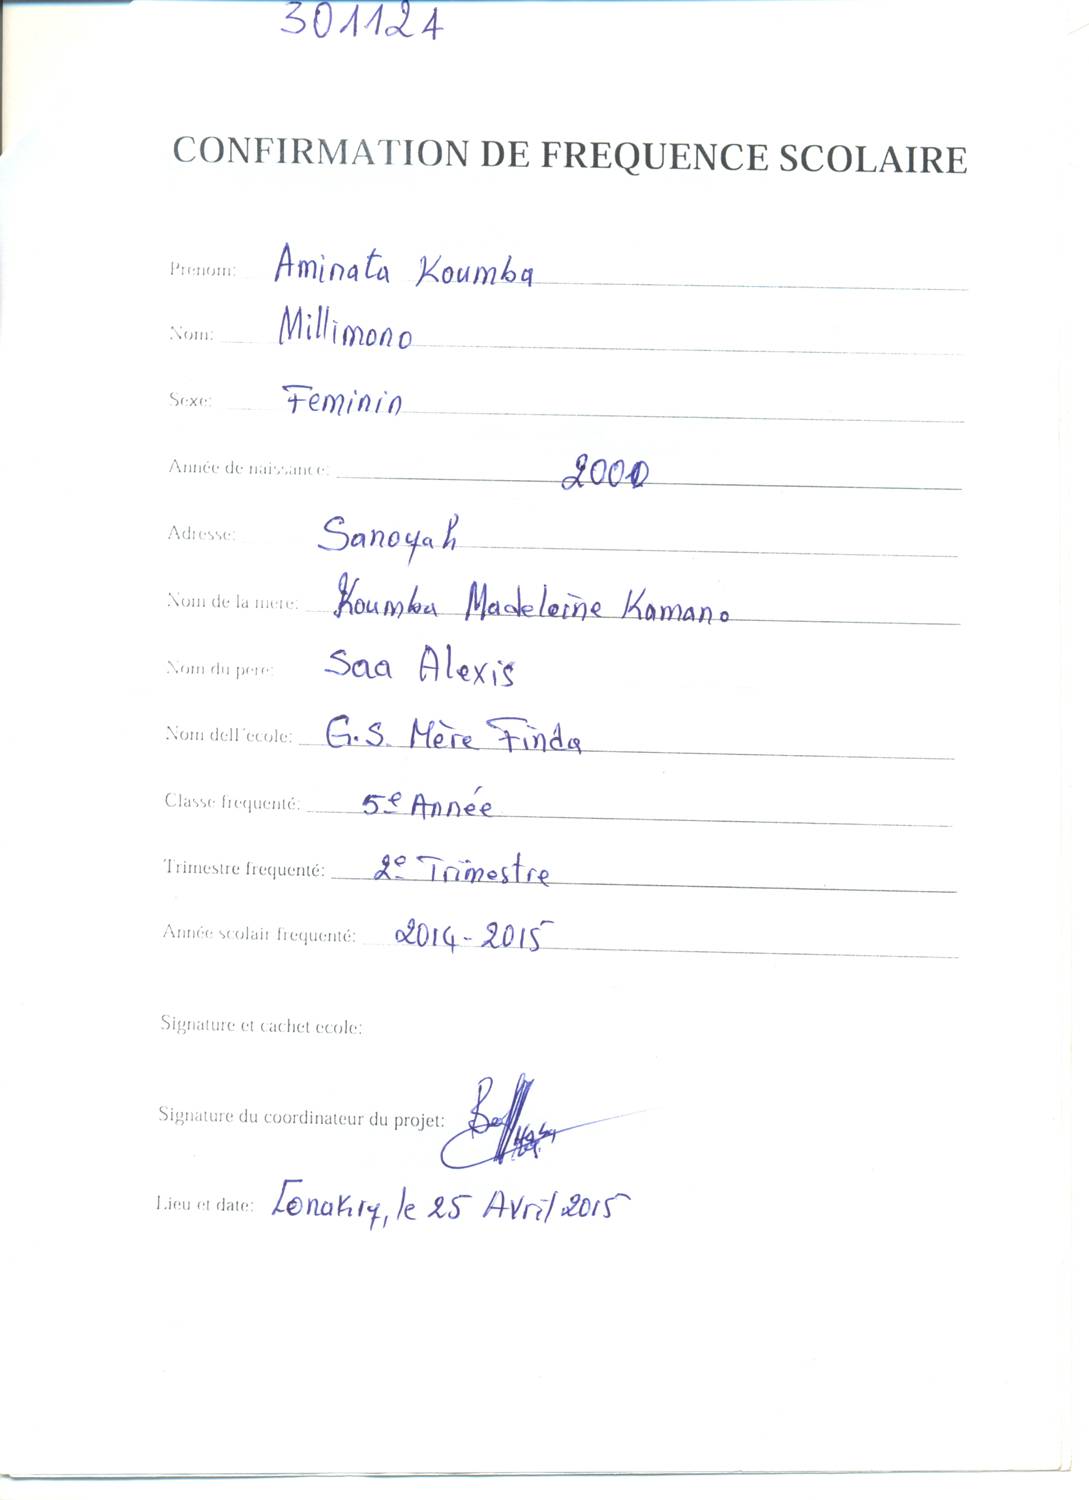 301124
CONFIRMATION DE FREQUENCE SCOLAIRE
Prenom: Aminata Koumba
Nom: Millimono
Sexe: Feminin
Année de naissance: 2000
Adresse: Sanoyah
Nom de la mere: Koumba Madeleine Kamano
Nom du pere: Saa Alexis
Nom dell'ecole: G.S. Mère Finda
Classe frequenté: 5e Année
Trimestre frequenté: 2e Trimestre
Année scolair frequenté: 2014-2015
Signature et cachet ecole:
Signature du coordinateur du projet:
Lieu et date: Conakry, le 25 Avril 2015